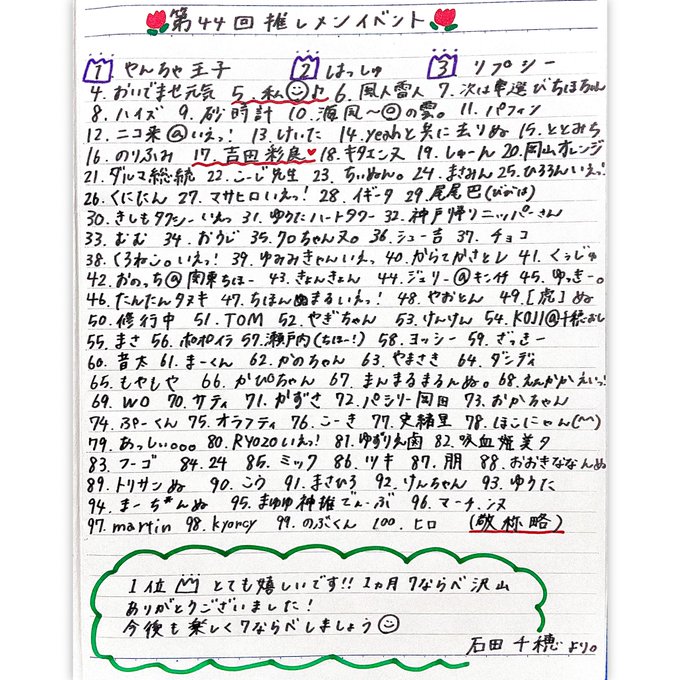 第44回推しメンイベント
1 やんちゃ王子 2 はっしゅ 3 リプシー
4. おいでませ元気 5. 私☺♪ 6. 風人雷人 7. 次は串選びちほちゃん
8. ハイズ 9. 砂時計 10. 海風〜㋺の雲。 11. パフィン
12. ニコ来@いえっ! 13. けいた 14. yeahと共に去りぬ 15. ととみち
16. のりふみ 17. 吉田彩良♥ 18. キタエンヌ 19. しゅーん 20. 岡山オレンジ
21. ダルマ総統 22. こーじ先生 23. ちぃぬん。 24. まさみん 25. ひろろんいえっ!
26. くにたん 27. マサヒロいえっ! 28. イギータ 29. 尾尾巴(びのは)
30. きしもタクシーいえっ 31. ゆうたハートタワー 32. 神戸帰りニッパーさん
33. むむ 34. おうじ 35. クロちゃんヌ。 36. シュー吉 37. チョコ
38. くろねこ。いえっ! 39. ゆみみきゃんいえっ 40. からてかさとし 41. くぅじゅ
42. おのっち@関東ちほー 43. きょんきょん 44. ジュリー@キンイチ 45. ゆっきー。
46. たんたんタヌキ 47. ちほんぬまるいえっ! 48. やおとん 49. [虎]ぬ
50. 修行中 51. TOM 52. やぎちゃん 53. けんけん 54. KOJI@千穂おし
55. まさ 56. ポポイラ 57. 瀬戸内(ちほー!) 58. ヨッシー 59. ざっきー
60. 音太 61. まーくん 62. かのちゃん 63. やまさき 64. ダンディ
65. もやしもや 66. かぴちゃん 67. まんまるまるんぬ。 68. えんかかえいっ!
69. WO 70. サティ 71. かずさ 72. パシリー岡田 73. おかちゃん
74. ぷーくん 75. オラフティ 76. こーき 77. 史緒里 78. ほこにゃん(^^)
79. あっしぃ。。。 80. RYOZOいえっ! 81. ゆずりえ歯 82. 吸血姫美夕
83. フーゴ 84. 24 85. ミック 86. ツキ 87. 朋 88. おおきななんぬ
89. トリサンぬ 90. こう 91. まさひろ 92. けんちゃん 93. ゆうた
94. まーち*んぬ 95. まゆゆ神推でぃーぶ 96. マーチンヌ
97. martin 98. kyorcy 99. のぶくん 100. ヒロ (敬称略)
1位 とても嬉しいです!! 1ヵ月7ならべ沢山
ありがとうございました!
今後も楽しく7ならべしましょう☺
石田千穂より。